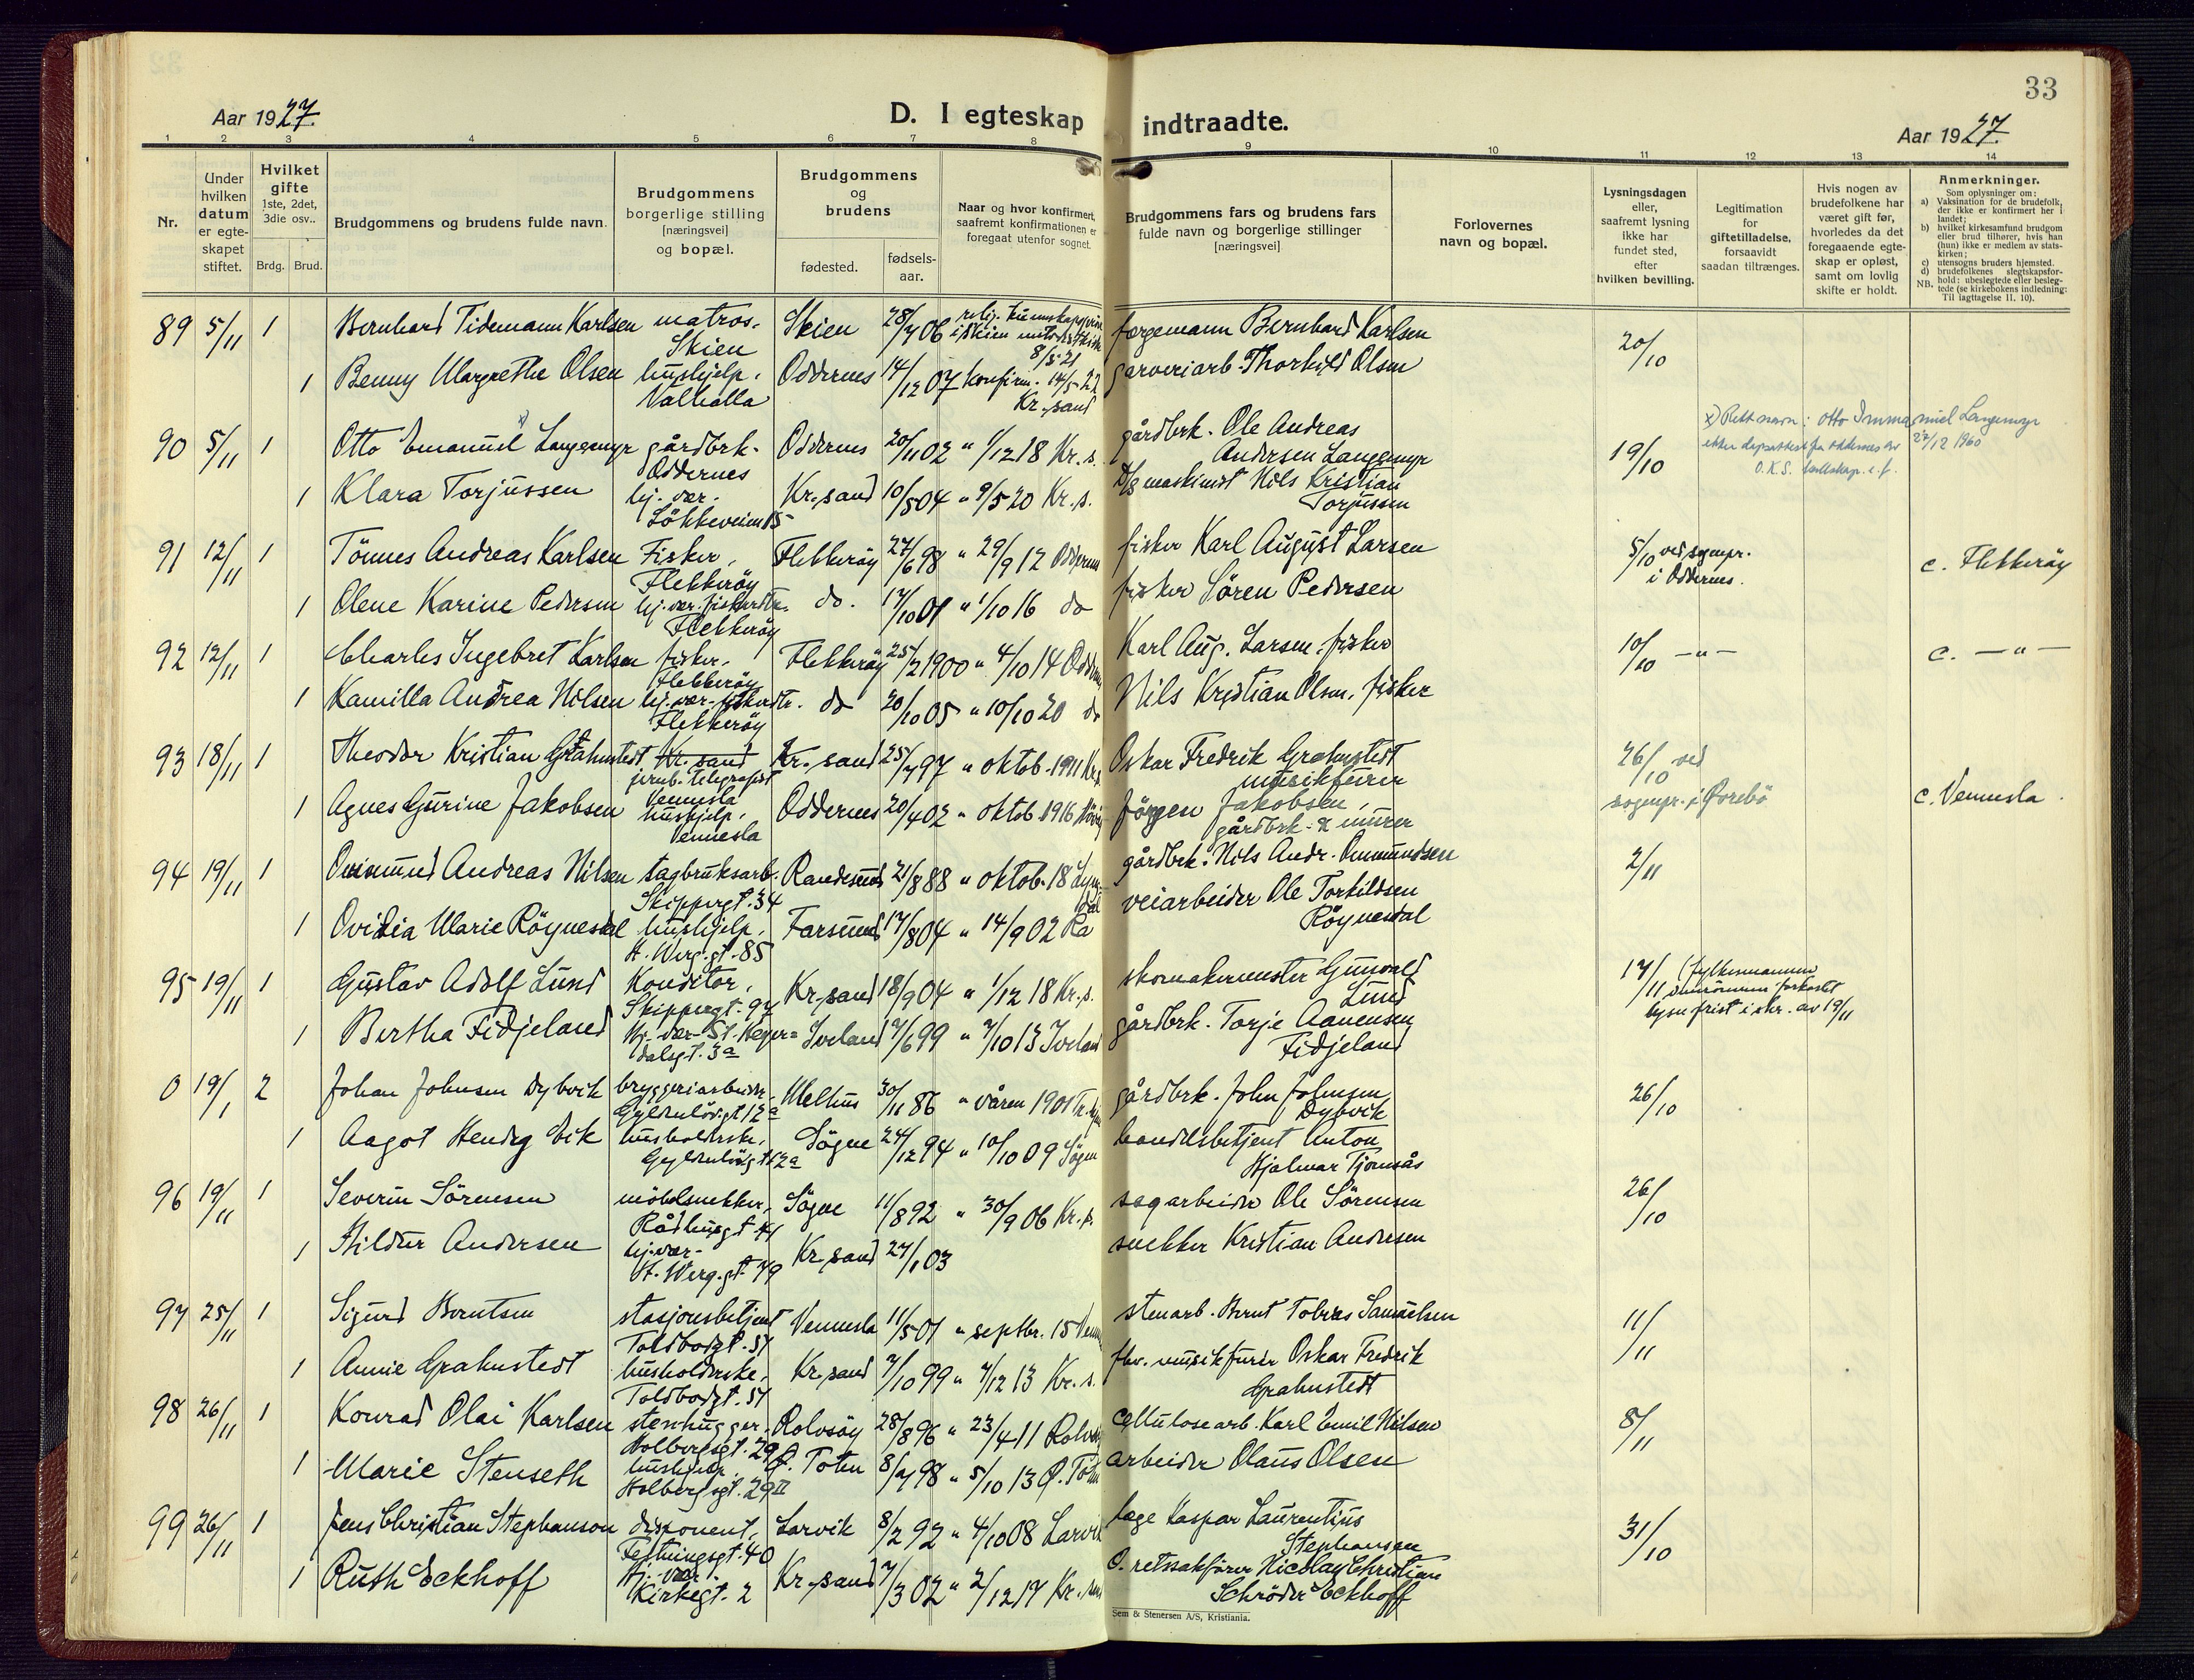 33
Aar 1927.
D. I egteskap indtraadte.
Aar 1927.
1 2 3 4 5 6 7 8 9 10 11 12 13 14
Nr.
Under hvilken datum er egteskapet stiftet.
Hvilket gifte 1ste, 2det, 3die osv..
Brdg. Brud.
Brudgommens og brudens fulde navn.
Brudgommens borgerlige stilling [næringsvei] og bopæl.
Brudgommens og brudens
fødested.
fødsels-aar.
Naar og hvor konfirmert, saafremt konfirmationen er foregaat utenfor sognet.
Brudgommens fars og brudens fars fulde navn og borgerlige stillinger [næringsvei]
Forlovernes navn og bopæl.
Lysningsdagen eller, saafremt lysning ikke har fundet sted, efter hvilken bevilling.
Legitimation for giftetilladelse, forsaavidt saadan tiltrænges.
Hvis nogen av brudefolkene har været gift før, hvorledes da det foregaaende egteskap er opløst, samt om lovlig skifte er holdt.
Anmerkninger.
Som oplysninger om:
a) Vaksination for de brudefolk, der ikke er konfirmert her i landet;
b) hvilket kirkesamfund brudgom eller brud tilhører, hvis han (hun) ikke er medlem av statskirken;
c) utensogns bruders hjemsted.
d) brudefolkenes slegtskapsforhold: ubeslegtede eller beslegtede (se kirkebokens indledning: NB. Til iagttagelse II. 10).
89 5/11 1 Bernhard Tidemann Karlsen matros. Skien Skien 28/7 06 i Skien 8/5-21 færgemann Bernhard Karlsen 20/10
1 Benny Margrethe Olsen hushjelp. Valhalla Oddernes 14/12 07 konfirm. 14/5-22 Kr.sand garveriarb. Thorkild Olsen
90 5/11 1 Otto Emanuel x) Langemyr gårdbrk. Oddernes Oddernes 20/11 02 " 1/12 18 Kr.s. gårdbrk. Ole Andreas Andersen Langemyr 19/10 x) Rett navn: Otto Immanuel Langemyr 27/12 1960
1 Klara Torjussen hj. vær. Lökkeveien 15 Kr.sand 10/5 04 " 9/5 20 Kr.s. D/S maskinist Nils Kristian Torjussen
91 12/11 1 Tönnes Andreas Karlsen Fisker, Flekkeröy Flekkeröy 27/6 98 " 29/9 12 Oddernes fisker Karl August Larsen 5/10 ved sognepr. i Oddernes. c. Flekkeröy
1 Olene Karine Pedersen hj. vær. fiskerdtr. Flekkeröy do. 17/10 01 " 1/10 16 do fisker Sören Pedersen
92 12/11 1 Charles Ingebret Karlsen fisker. Flekkeröy Flekkeröy 25/2 1900 " 4/10 14 Karl Aug. Larsen, fisker 10/10 — " — c. — " —
1 Kamilla Andrea Nilsen hj. vær. fiskerdtr. Flekkeröy do 20/10 05 " 10/10 20 do Nils Kristian Olsen, fisker
93 18/11 1 Theodor Kristian Grahnstedt Kr. sand jernb. telegrafist Vennesla Kr. sand 25/7 97 " oktob. 1911 Kr.s. Oskar Fredrik Grahnstedt musikfurer 26/10 ved sognepr. i c. Vennesla.
1 Agnes Gurine Jakobsen hushjelp, Vennesla Oddernes 20/4 02 " oktob. 1916 Jörgen Jakobsen, gårdbrk. & murer
94 19/11 1 Ommund Andreas Nilsen sagbruksarb. Skippergt. 34 Randesund 21/8 88 " oktob. 18 gårdbrk. Nils Andr. Ommundsen 2/11
1 Ovidia Marie Röynesdal hushjelp, H. Werg.gt. 85 Farsund 17/8 04 " 14/9 02 veiarbeider Ole Torkildsen Röynesdal
95 19/11 1 Gustav Adolf Lund Konditor, Skippergt. 97 Kr.sand 18/9 04 " 1/12 18 Kr.s. skomakermester Gunvald Lund 17/11
1 Bertha Fidjeland Iveland 7/6 99 " 7/10 13 Iveland gårdbrk. Torje Aanensen Fidjeland
0 19/1 2 Johan Johnsen Dybvik bryggeriarbeider, Gyldenlövsgt 12a Melhus 30/11 86 " våren 1901 gårdbrk. John Johnsen Dybvik 26/10
1 Aagot Hendry Eik husholderske, Gyldenlövsgt 12a Sögne 24/12 94 " 10/10 09 Sögne handelsbetjent Anton Hjalmar Tjomsås
96 19/11 1 Severin Sörensen möbelsnekker, Rådhusgt 41 Sögne 11/8 92 " 30/9 06 Kr.s. sagarbeider Ole Sörensen 26/10
1 Hildur Andersen hj. vær. H. Werg.gt. 79 Kr.sand 27/1 03 snekker Kristian Andersen
97 25/11 1 Sigurd Berntsen stasjonsbetjent Toldbodgt. 57 Vennesla 11/5 01 " septbr. 15 stenarb. Bernt Tobias Samuelsen 11/11
1 Annie Grahnstedt husholderske, Toldbodgt. 57 Kr.sand 7/10 99 " 7/12 13 Kr.s. fhv. musikfurer Oskar Fredrik Grahnstedt
98 26/11 1 Konrad Olai Karlsen stenhugger, Holbergsgt. 29 Rolvsöy 28/8 96 " 23/4 11 Rolvsöy cellulosearb. Karl Emil Nilsen 8/11
1 Marie Stenseth hushjelp. Holbergsgt. 29 II Ø. Toten 8/7 98 " 5/10 13 Ø. Toten arbeider Olaus Olsen
99 26/11 1 Jens Christian Stephanson disponent, Festningsgt. 40 Larvik 8/2 92 " 4/10 08 Larvik læge Kaspar Laurentius Stephansen 31/10
1 Ruth Eckhoff Hj. vær. Kirkegt. 2 Kr.sand 7/3 02 " 2/12 17 O. retssakförer Nicolay Christian Schröder Eckhoff
Sem & Stenersen A/S, Kristiania.